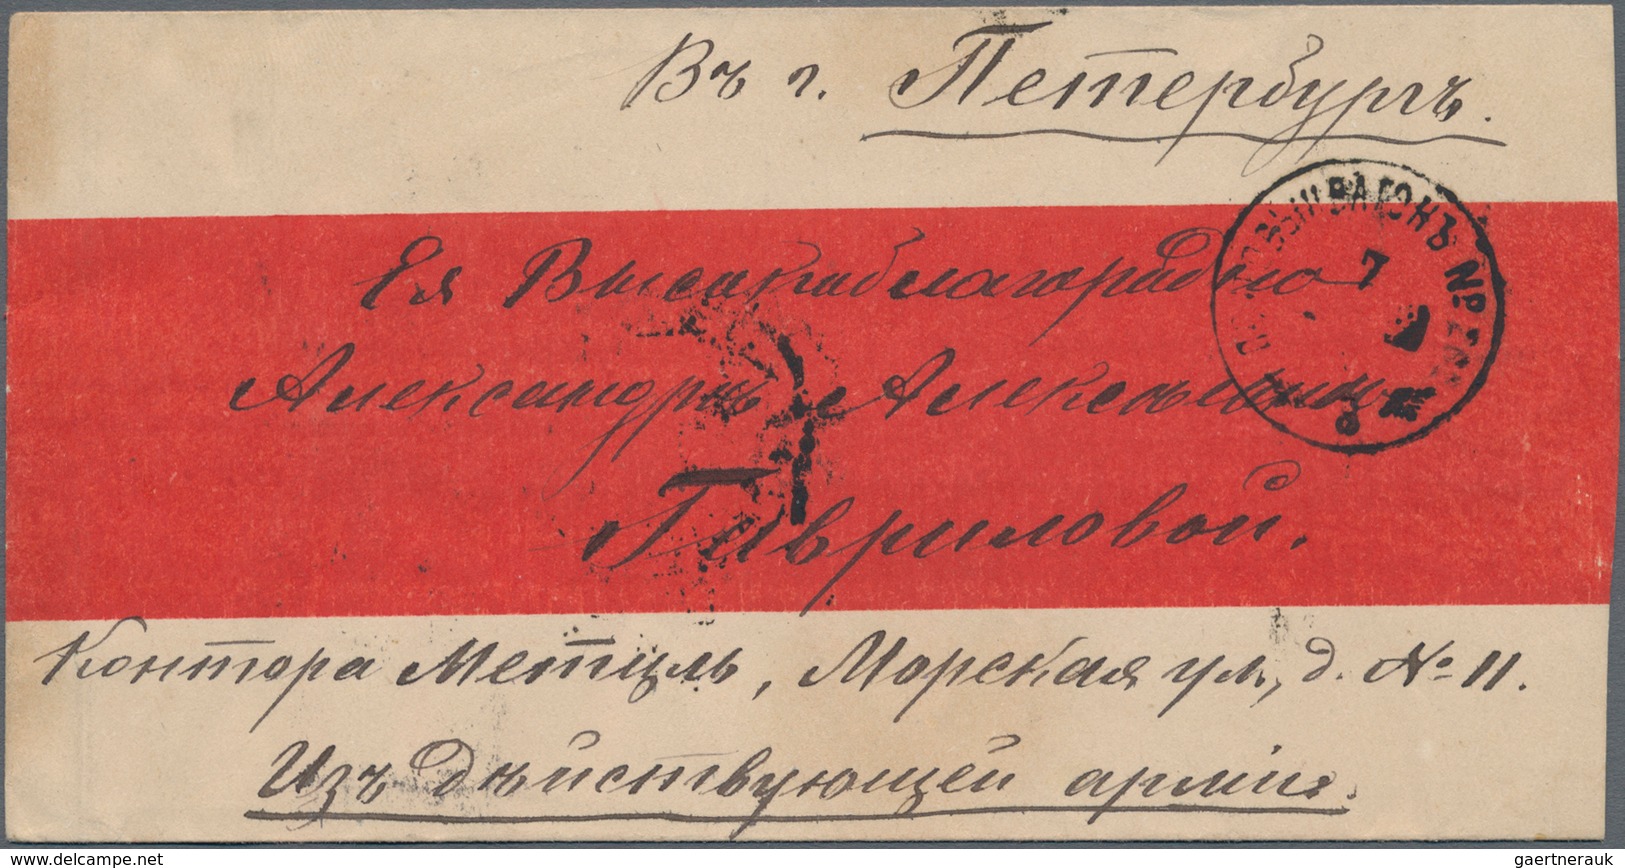 Въ г. Петербургъ.
Ея Высокоблагородію
Александрѣ Алексѣевнѣ
Гавриловой.
Контора Метцль, Морская ул., д. № 11.
Изъ дѣйствующей арміи.
ВАГОНЪ №
7
delcampe.net
gaertnerauk